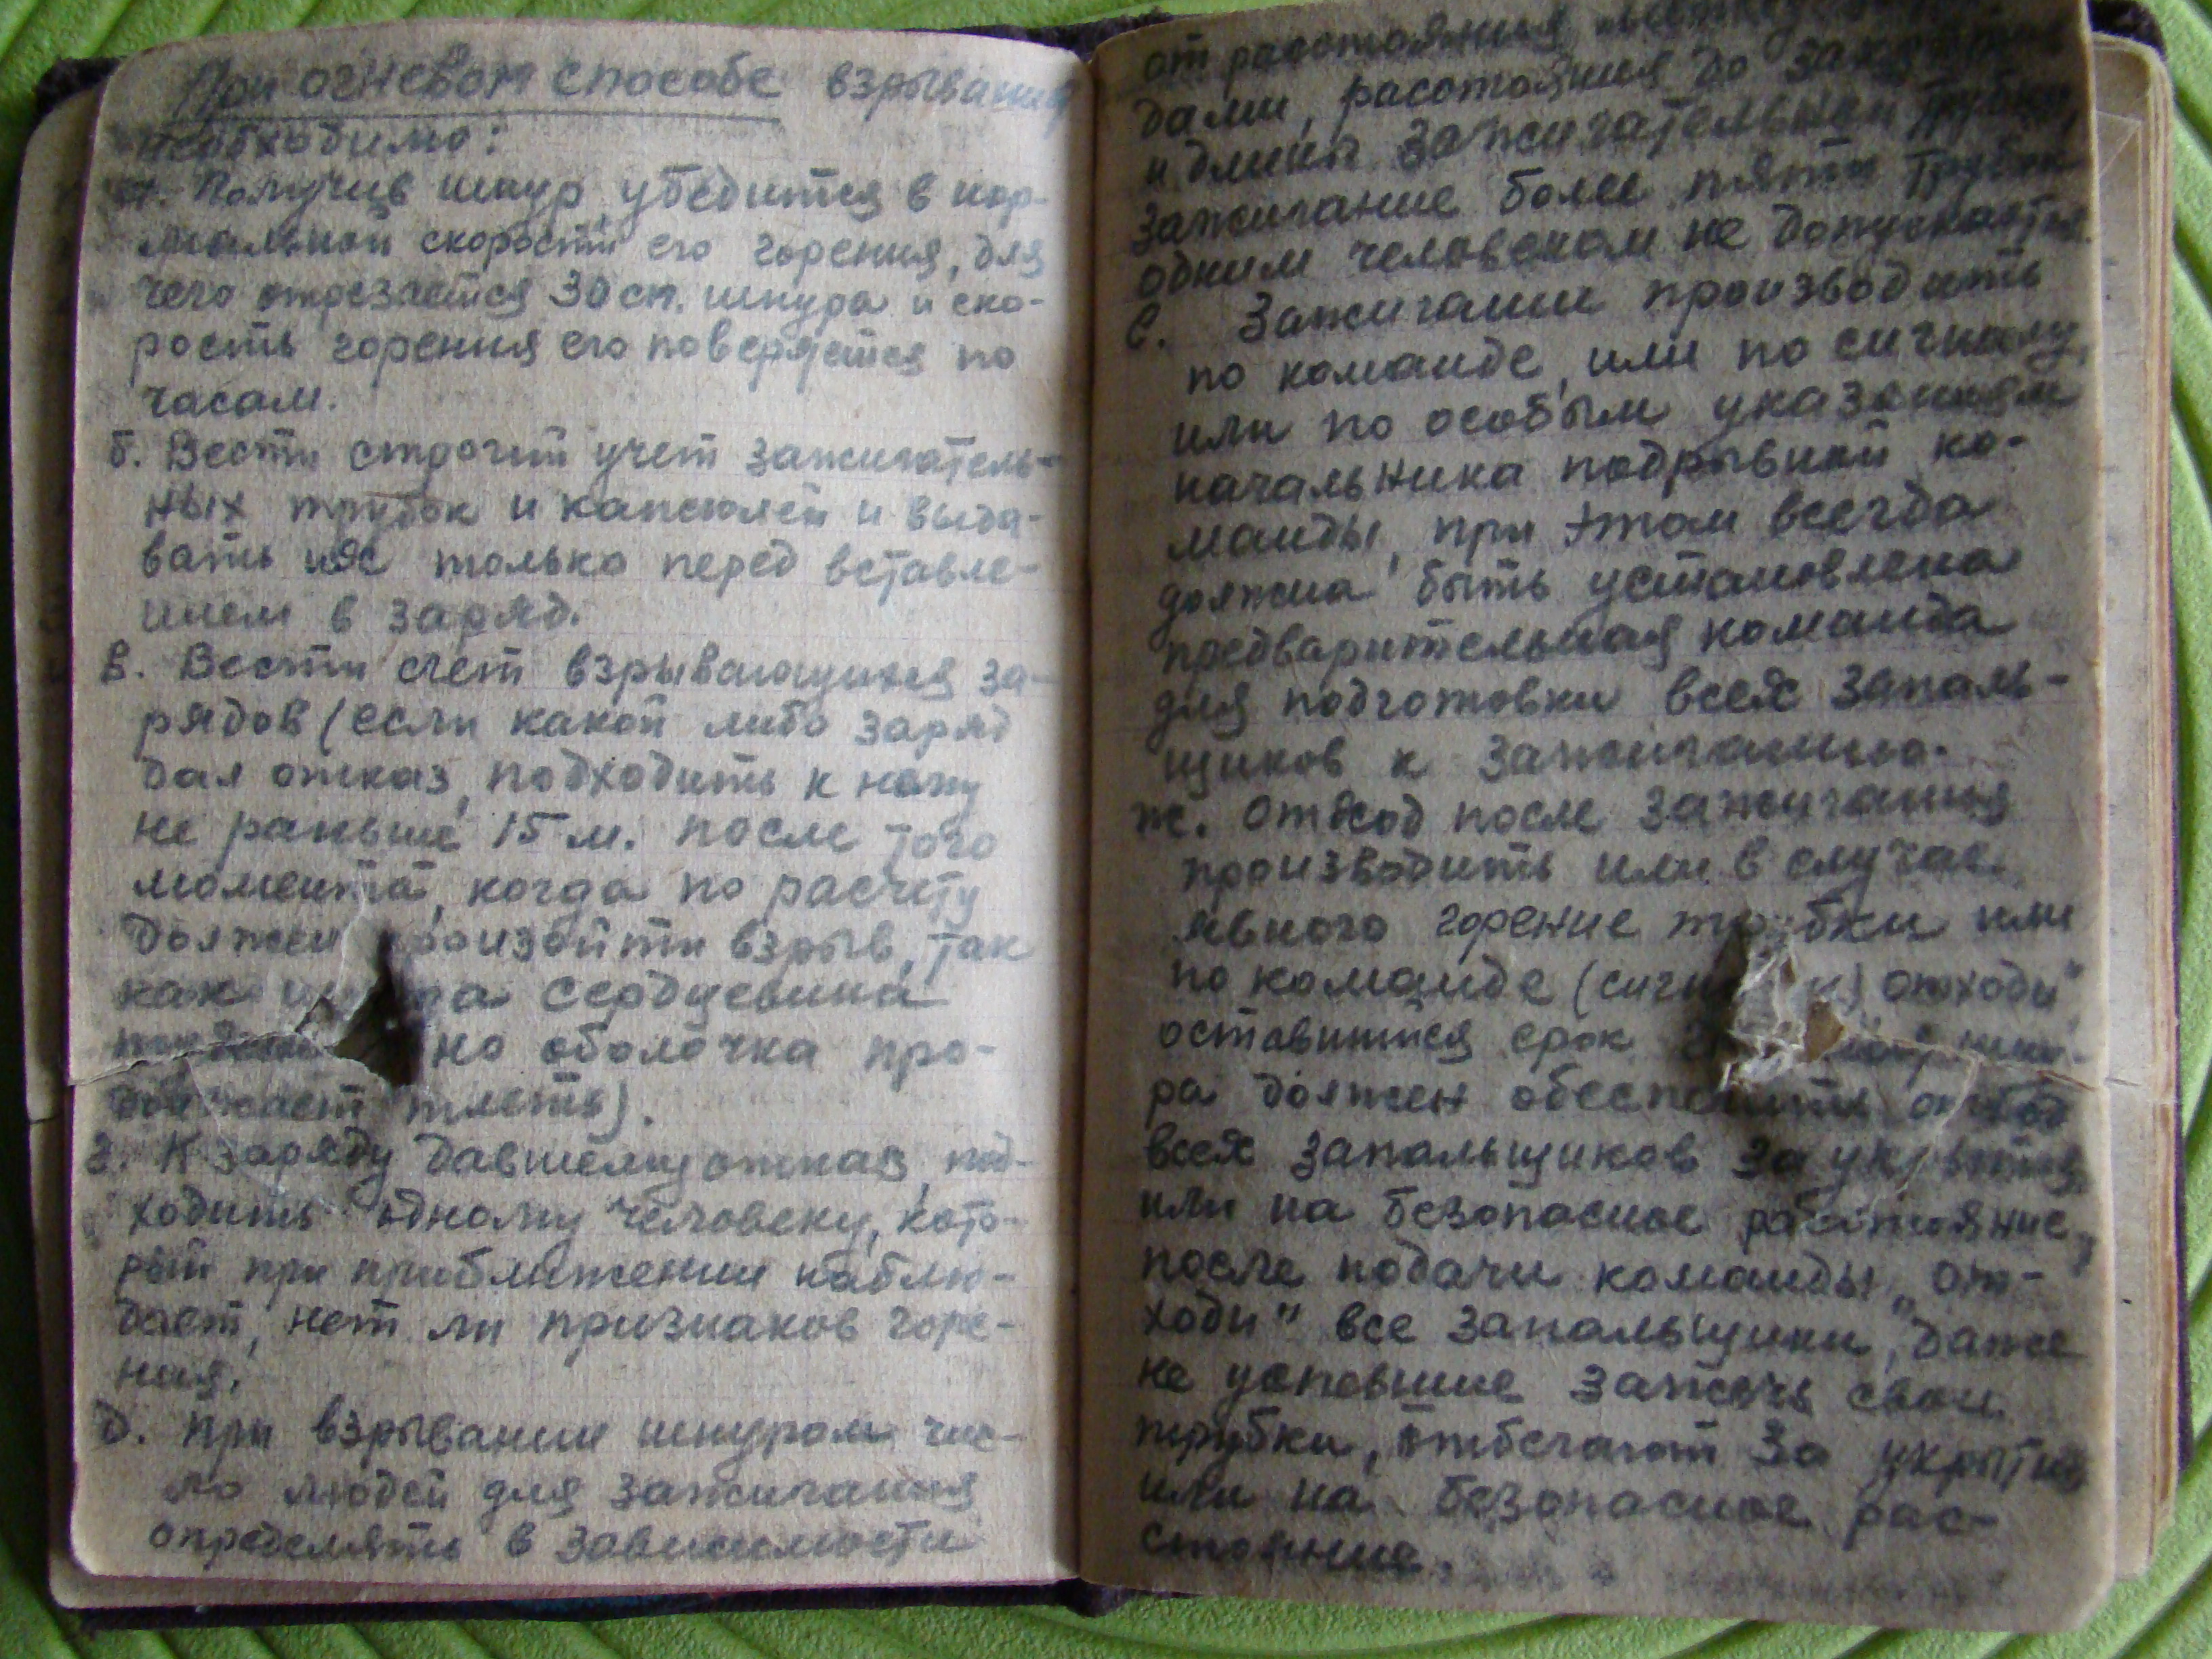 При огневом способе взрывания
необходимо:
а. Получив шнур, убедится в нор-
мальной скорости его горения, для
чего отрезается 30 см. шнура и ско-
рость горения его поверяется по
часам.
б. Вести строгий учет зажигатель-
ных трубок и капсюлей и выда-
вать их только перед вставле-
нием в заряд.
В. Вести счет взрывающихся за-
рядов (если какой либо заряд
дал отказ, подходить к нему
не раньше 15 м. после того
момента, когда по расчету
должен произойти взрыв, так
как сердцевина
но оболочка про-
должает тлеть).
г. К заряду давшему отказ, под-
ходить одному человеку, кото-
рый при приближении наблю-
дает, нет ли признаков горе-
ния.
д. При взрывании шнуром чис-
ло людей для зажигания
определять в зависимости
от расстояния между
дами, расстояния до
и длины зажигательной трубки,
зажигание более пяти трубок
одним человеком не допускается.
е. Зажигание производить
по команде, или по сигналу,
или по особым указаниям
начальника подрывной ко-
манды, при этом всегда
должна быть установлена
предварительная команда
для подготовки всех запаль-
щиков к зажиганию.
ж. Отход после зажигания
производить или в случае
явного горение трубки или
по команде отходи"
оставшийся срок шну-
ра должен обеспечить отход
всех запальщиков за укрытия
или на безопасное расстояние,
после подачи команды „от-
ходи" все запальщики, даже
не успевшие зажечь свои
трубки, отбегают за укрытия
или на безопасное рас-
стояние.